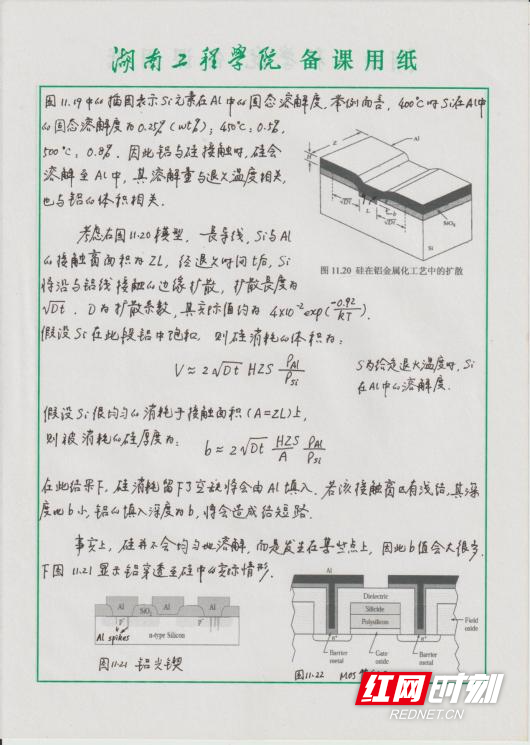 湖南工程学院 备课用纸
图11.19中的插图表示Si元素在Al中的固态溶解度,举例而言,400℃时Si在Al中
的固态溶解度为0.25%(wt%);450℃:0.5%,
500℃:0.8%.因此铝与硅接触时,硅会
溶解至Al中,其溶解量与退火温度相关,
也与铝的体积相关.
考虑右图11.20模型,一长导线,Si与Al
的接触窗面积为ZL,经退火时间t后,Si
将沿与铝线接触的边缘扩散,扩散长度为
√Dt. D为扩散系数,其实际值约为 4×10⁻² exp(-0.92/kT).
假设Si在此段铝中饱和,则硅消耗的体积为:
V ≈ 2√Dt HZS ρAl/ρSi
S为给定退火温度时,Si
在Al中的溶解度.
假设Si很均匀的消耗于接触面积(A=ZL)上,
则被消耗的硅厚度为:
b ≈ 2√Dt HZS/A ρAl/ρSi
在此结果下,硅消耗留下了空缺将会由Al填入.若该接触窗区有浅结,其深
度比b小,铝的填入深度为b,将会造成结短路.
事实上,硅并不会均匀地溶解,而是发生在某些点上,因此b值会大很多.
下图11.21显示铝穿透至硅中的实际情形.
Z
Al
H
√Dt
L
b
√Dt
SiO₂
Si
图 11.20 硅在铝金属化工艺中的扩散
Al
Al
Al
SiO₂
p⁺
p⁺
Al spikes
n-type Silicon
图11.21 铝尖锲
Al
Dielectric
Silicide
Polysilicon
Field
oxide
n⁺
n⁺
Barrier
metal
Gate
oxide
Barrier
metal
图11.22 MOS
红网时刻
REDNET.CN